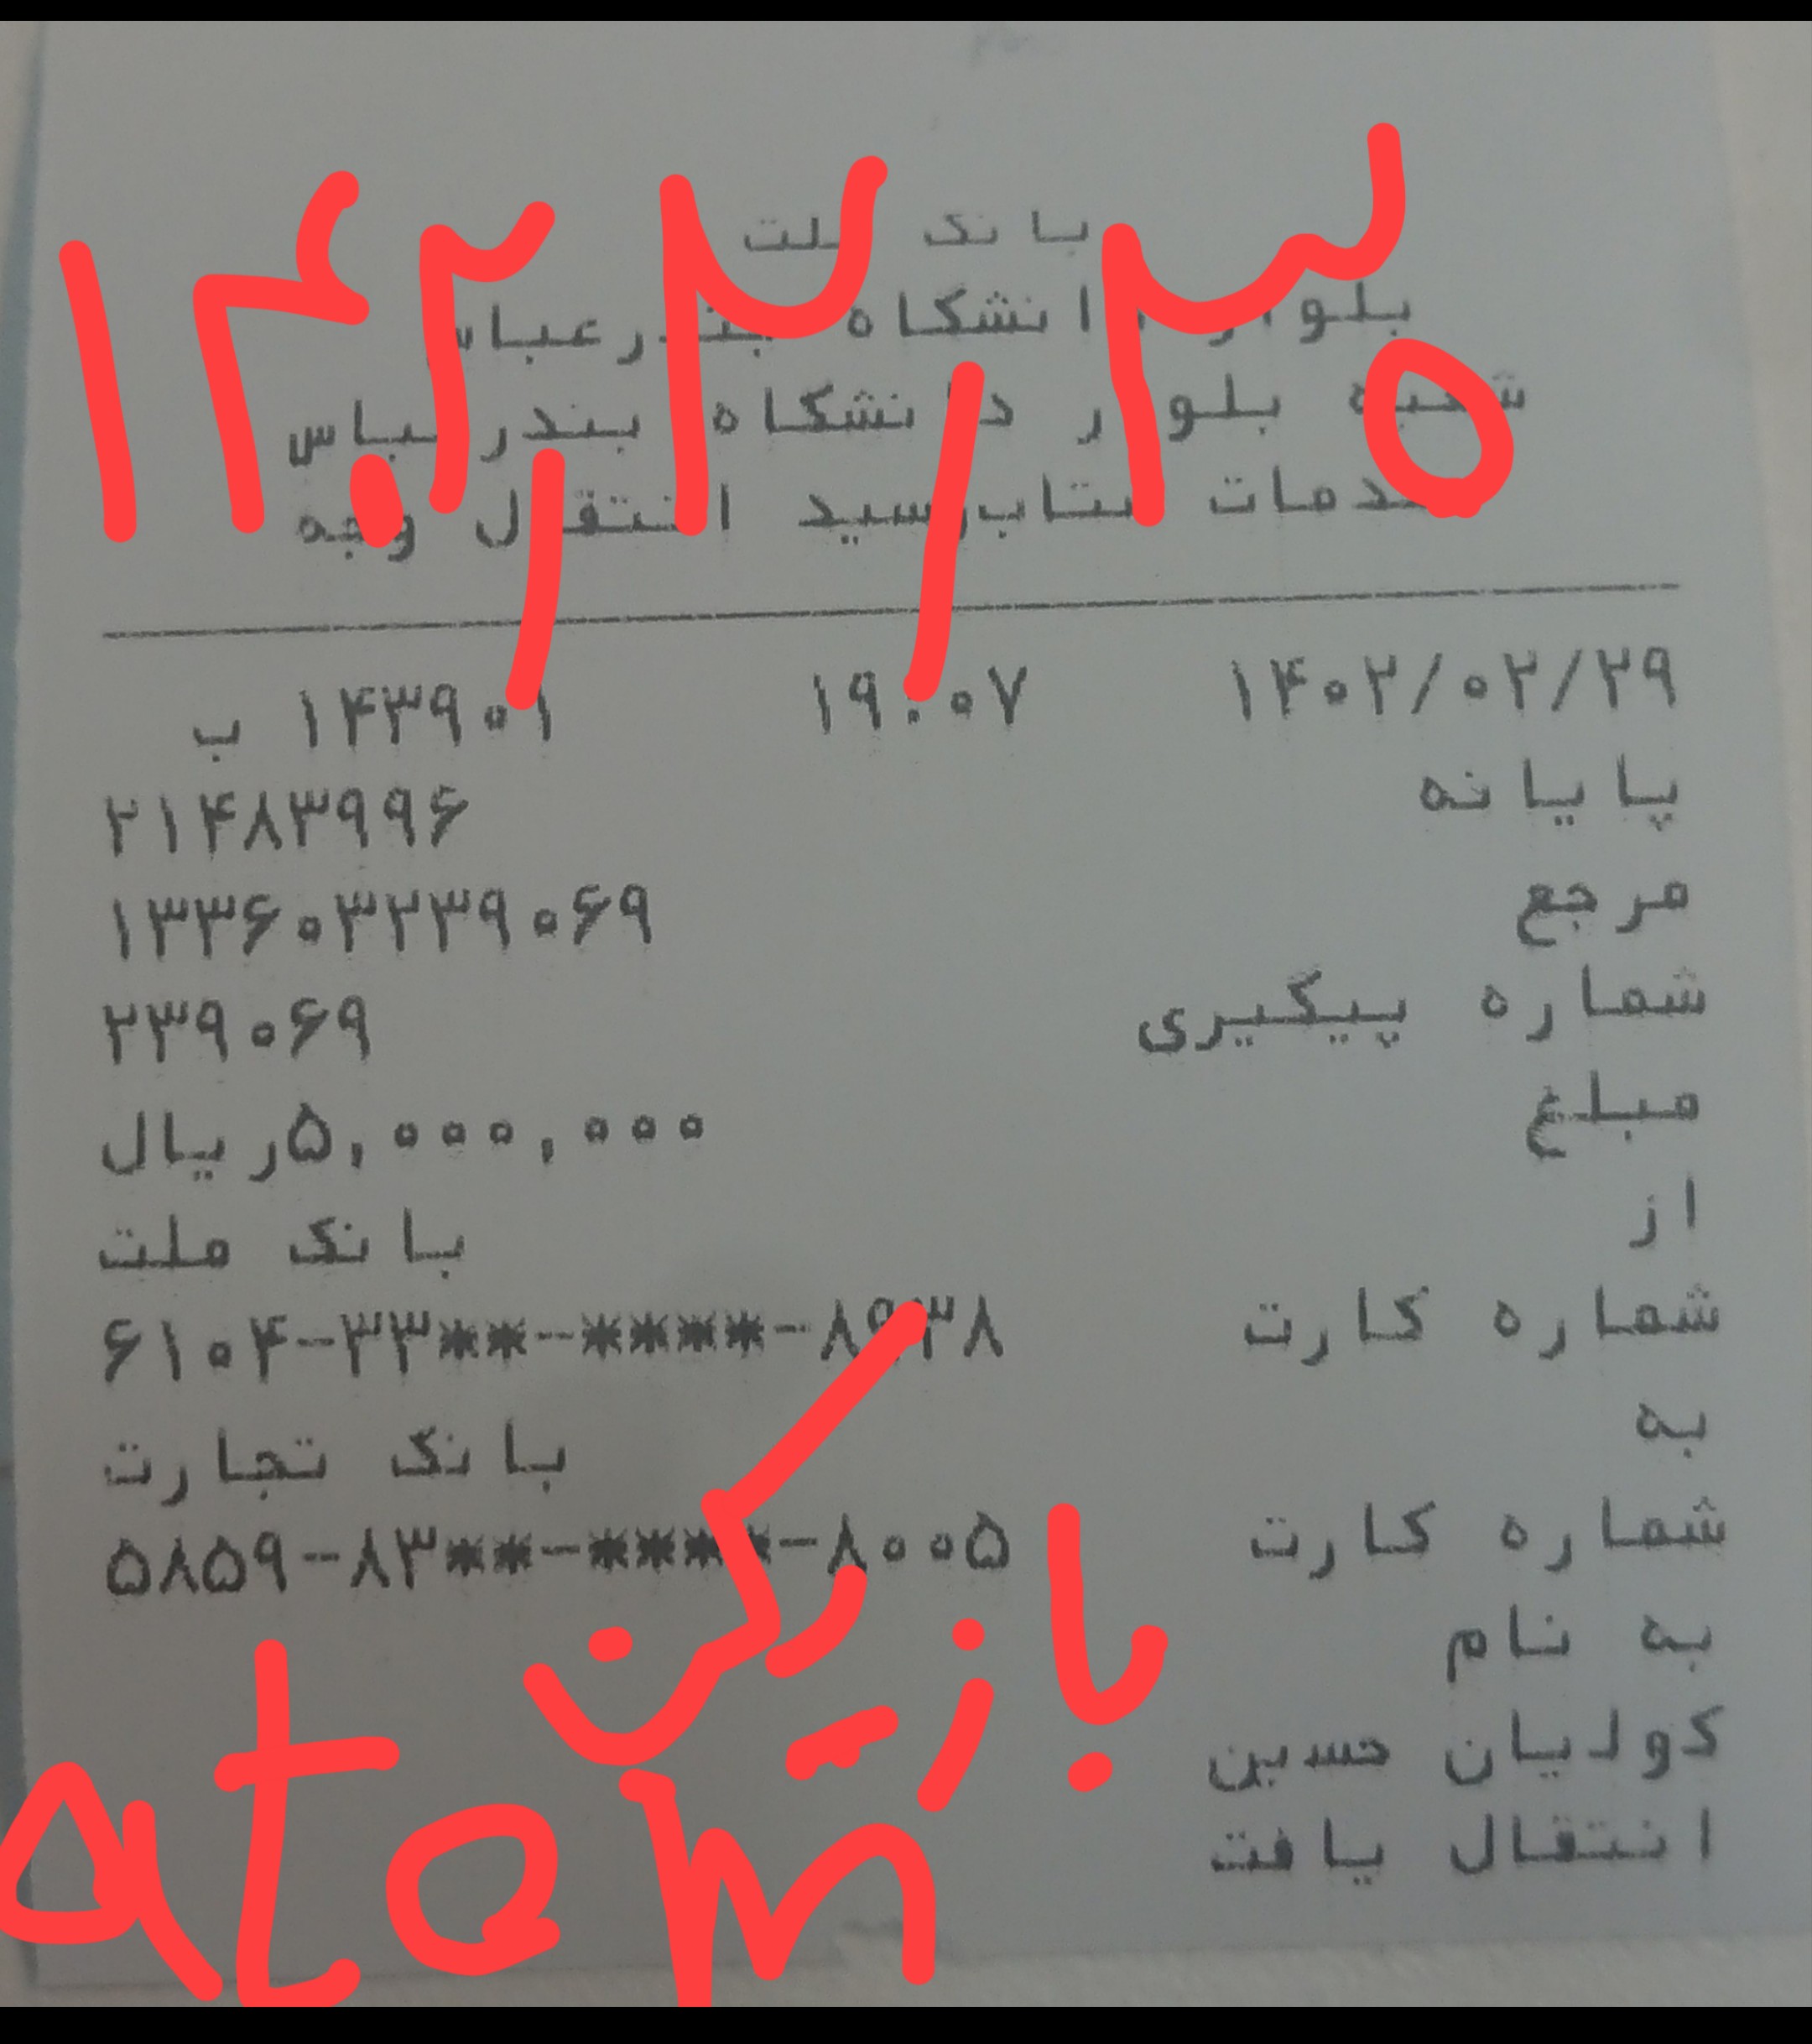 بانک ملت
بلوار دانشگاه بندرعباس
شعبه بلوار دانشگاه بندرعباس
خدمات انتقال وجه
۱۴۰۲/۰۲/۲۹ ۱۹:۰۷ ۱۴۳۹۰۱ ب
پایانه ۲۱۴۸۳۹۹۶
مرجع ۱۳۳۶۰۳۲۳۹۰۶۹
شماره پیگیری ۲۳۹۰۶۹
مبلغ ۵,۰۰۰,۰۰۰ریال
از بانک ملت
شماره کارت ۶۱۰۴-۳۳**-****-۸۹۳۸
به بانک تجارت
شماره کارت ۵۸۵۹-۸۳**-****-۸۰۰۵
به نام
کولیان حسین
انتقال یافت
بازیکن
atom